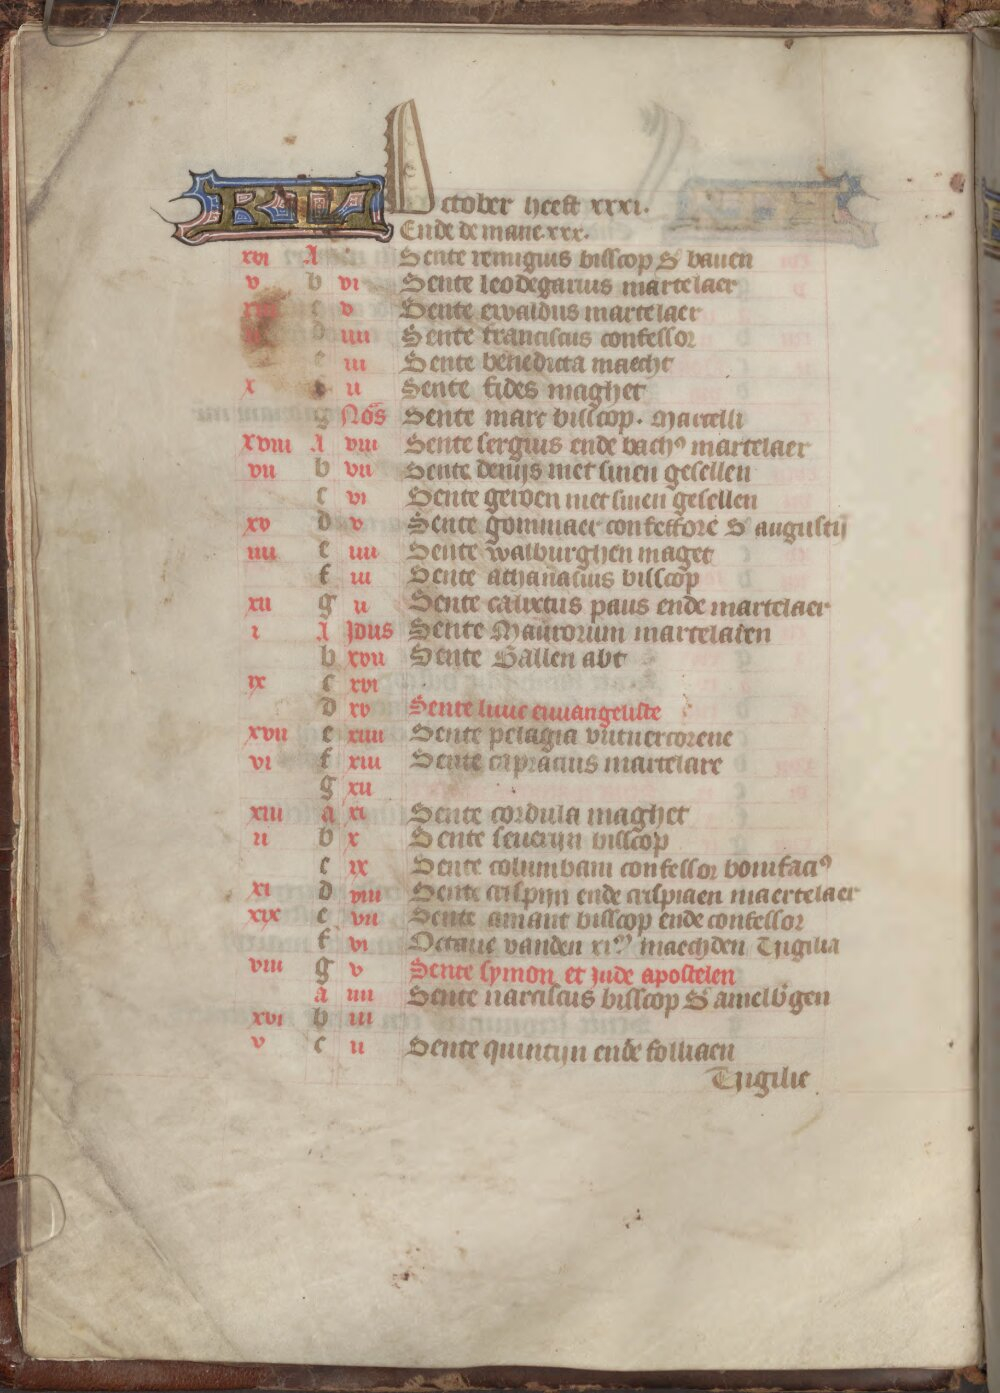 KL October heeft xxxi.
Ende de mane. xxx.
xvi A Sente remigius bisscop S bauen
v b vi Sente leodegarius martelaer
xiii c v Sente ewaldus martelaer
d iiii Sente franciscus confessor
e iii Sente benedicta maecht
x f ii Sente fides maghet
g Nōs Sente marc bisscop. Marcelli
xviii A viii Sente sergius ende bachꝰ martelaer
vii b vii Sente denijs met sinen gesellen
c vi Sente gereoen met sinen gesellen
xv d v Sente gommaer confessore S augustij
iiii e iiii Sente walburghen maget
f iii Sente athanasius bisscop
xii g ii Sente calixtus paus ende martelaer
i A Jdus Sente Maurorum martelaren
b xvii Sente Gallen abt
ix c xvi
d xv Sente luuc euuangeliste
xvii e xiiii Sente pelagia
vi f xiii Sente capracius martelare
g xii
xiiii a xi Sente cordula maghet
ii b x Sente seuerijn bisscop
c ix Sente columbam confessor bonifaciꝰ
xi d viii Sente crispijn ende crispiaen maertelaer
xix e vii Sente amant bisscop ende confessor
f vi Octaue vanden xi.ᵐ maechden Vigilia
viii g v Sente symon et jude apostelen
a iiii Sente narcissus bisscop S
xvi b iii
v c ii Sente quintijn ende folliaen
Vigilie